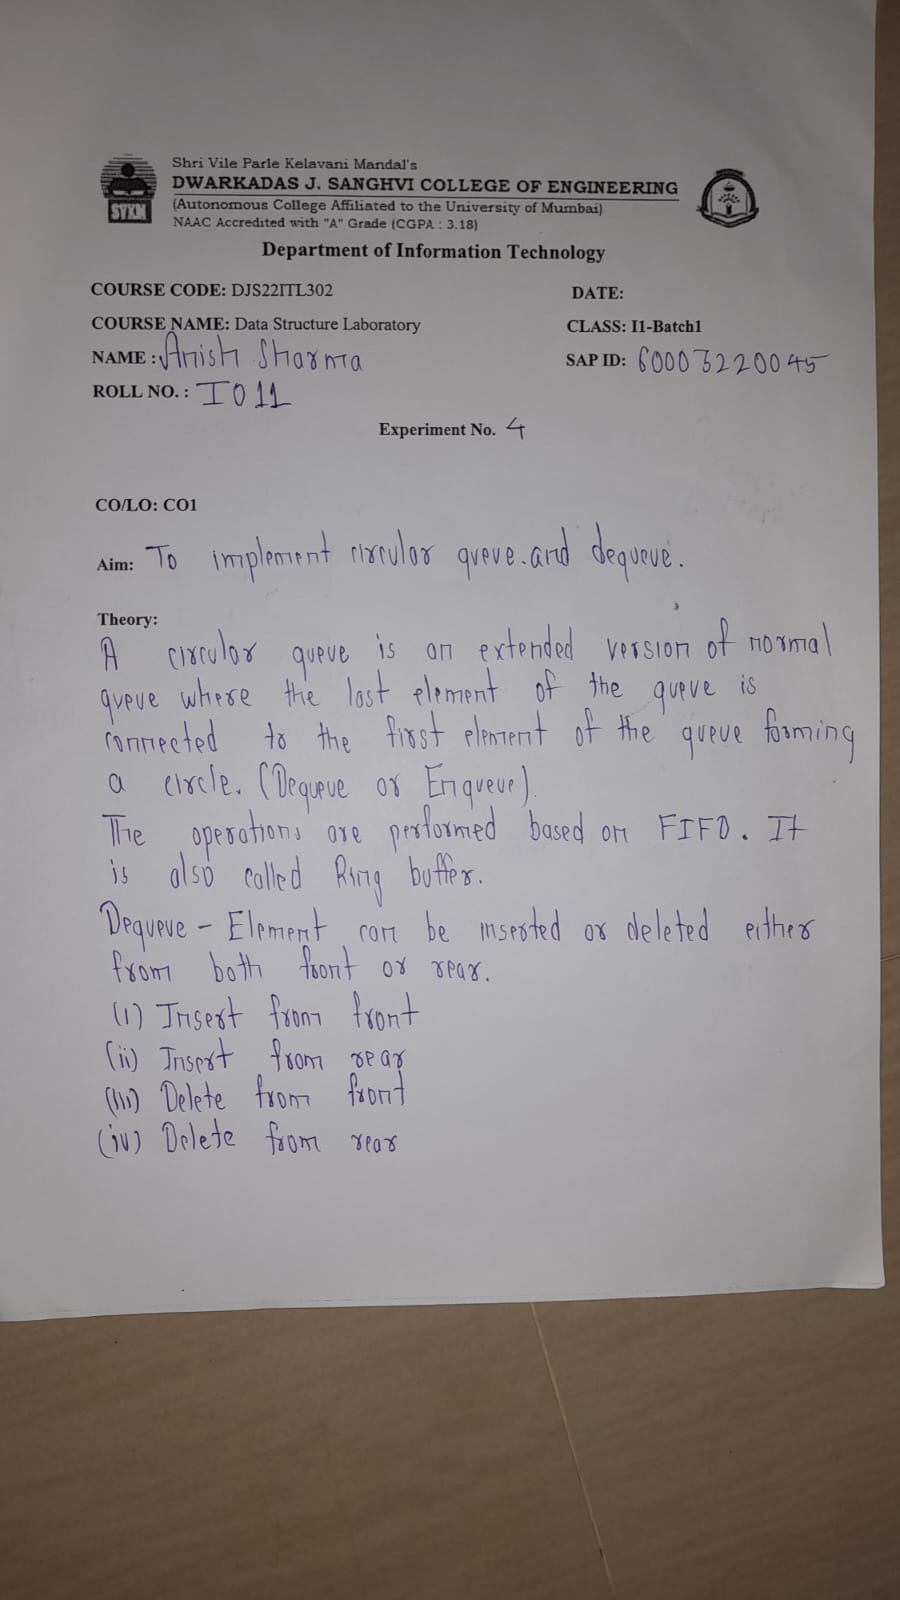 Shri Vile Parle Kelavani Mandal's
DWARKADAS J. SANGHVI COLLEGE OF ENGINEERING
(Autonomous College Affiliated to the University of Mumbai)
NAAC Accredited with "A" Grade (CGPA : 3.18)
SVKM
Department of Information Technology
COURSE CODE: DJS22ITL302 DATE:
COURSE NAME: Data Structure Laboratory CLASS: I1-Batch1
NAME : Anish Sharma SAP ID: 60003220045
ROLL NO. : I011
Experiment No. 4
CO/LO: CO1
Aim: To implement circular queue and dequeue.
Theory:
A circular queue is an extended version of normal
queue where the last element of the queue is
connected to the first element of the queue forming
a circle. (Dequeue or Enqueue)
The operations are performed based on FIFO. It
is also called Ring buffer.
Dequeue - Element can be inserted or deleted either
from both front or rear.
(i) Insert from front
(ii) Insert from rear
(iii) Delete from front
(iv) Delete from rear